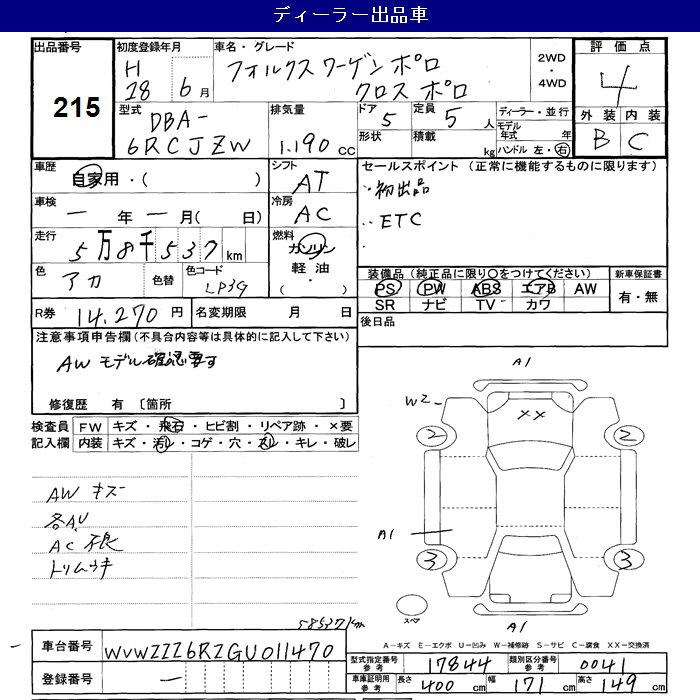 ディーラー出品車
出品番号 215
初度登録年月 H 28 年 6 月
車名・グレード フォルクスワーゲン ポロ クロス ポロ
2WD・4WD
評価点 4
外装 内装
B C
型式 DBA-6RCJZW
排気量 1.190 cc
ドア 5
定員 5 人
形状 積載 kg
ディーラー・並行
モデル年式 年
ハンドル 左・右
車歴 自家用・( )
シフト AT
セールスポイント (正常に機能するものに限ります)
・初出品
・ETC
・
車検 一 年 一 月 ( 日)
冷房 AC
走行 5万8千537 km
燃料 ガソリン 軽油 ( ・ )
色 アカ
色替
色コード LP3G
装備品 (純正品に限り○をつけてください)
新車保証書
PS PW ABS エアB AW
有・無
SR ナビ TV カワ
R券 14.270 円
名変期限 月 日
後日品
注意事項申告欄 (不具合内容等は具体的に記入して下さい)
AW モデル確認要す
修復歴 有 〔箇所 〕
検査員記入欄
FW キズ・飛石・ヒビ割・リペア跡・×要
内装 キズ・汚レ・コゲ・穴・スレ・キレ・破レ
AW キズ
AC 不良
58537km
A1
W2
XX
2 2
A1
3 3
スペア
A1
A-キズ E-エクボ U-凹み W-補修跡 S-サビ C-腐食 XX-交換済
車台番号 WVWZZZ6RZGU011470
登録番号 ー
型式指定番号 参考 17844
類別区分番号 参考 0041
車庫証明用 参考 長さ 400 cm 幅 171 cm 高さ 149 cm